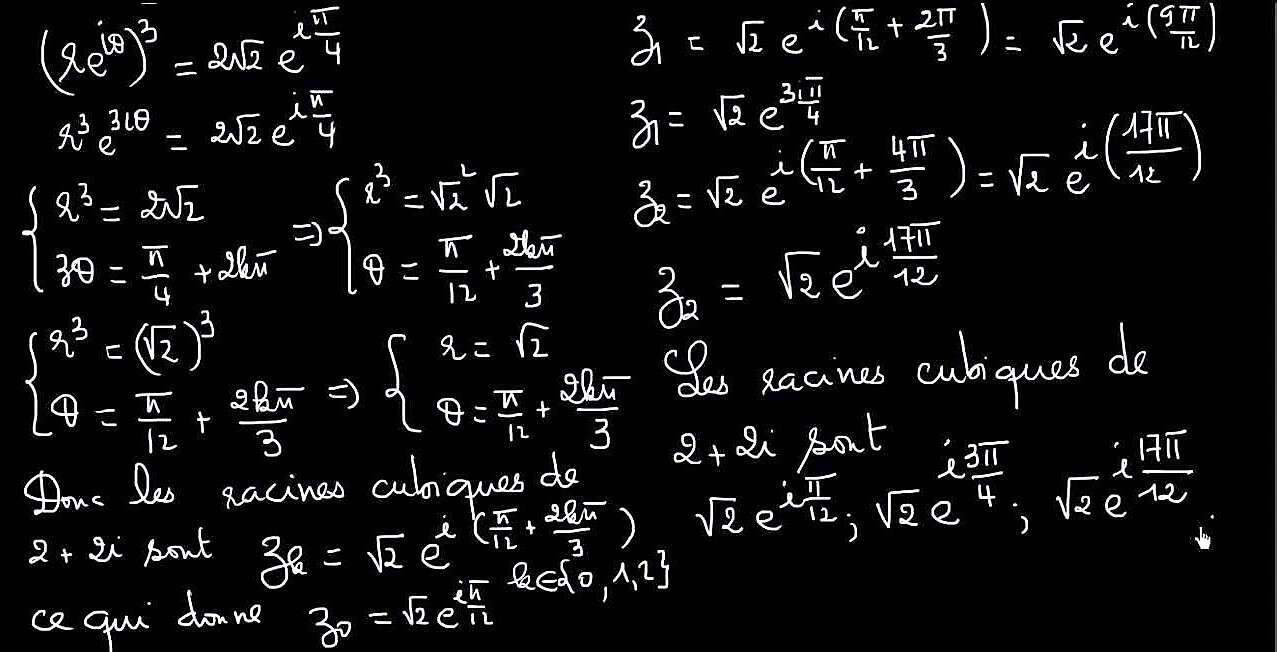 (re^{iθ})^3 = 2√2 e^{iπ/4}
r^3 e^{3iθ} = 2√2 e^{iπ/4}
{ r^3 = 2√2 ⇒ { r^3 = √2^2 √2
{ 3θ = π/4 + 2kπ { θ = π/12 + 2kπ/3
{ r^3 = (√2)^3 ⇒ { r = √2
{ θ = π/12 + 2kπ/3 { θ = π/12 + 2kπ/3
Donc les racines cubiques de
2 + 2i sont z_k = √2 e^{i(π/12 + 2kπ/3)}
k ∈ {0, 1, 2}
ce qui donne z_0 = √2 e^{iπ/12}
z_1 = √2 e^{i(π/12 + 2π/3)} = √2 e^{i(9π/12)}
z_1 = √2 e^{3iπ/4}
z_2 = √2 e^{i(π/12 + 4π/3)} = √2 e^{i(17π/12)}
z_2 = √2 e^{i17π/12}
Les racines cubiques de
2 + 2i sont
√2 e^{iπ/12} ; √2 e^{i3π/4} ; √2 e^{i17π/12} .